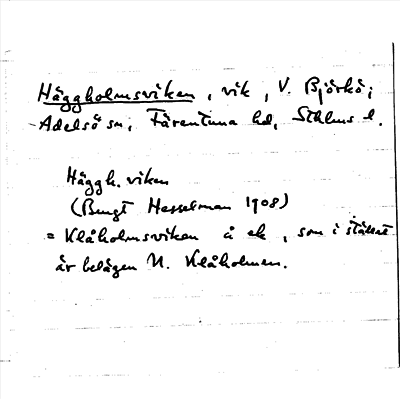 Häggholmsviken, vik, V. Björkö;
Adelsö sn, Färentuna hd, Sthlms l.
Häggh.viken
(Bengt Hesselman 1908)
= Klåholmsviken å ek, som i stället
är belägen N. Klåholmen.